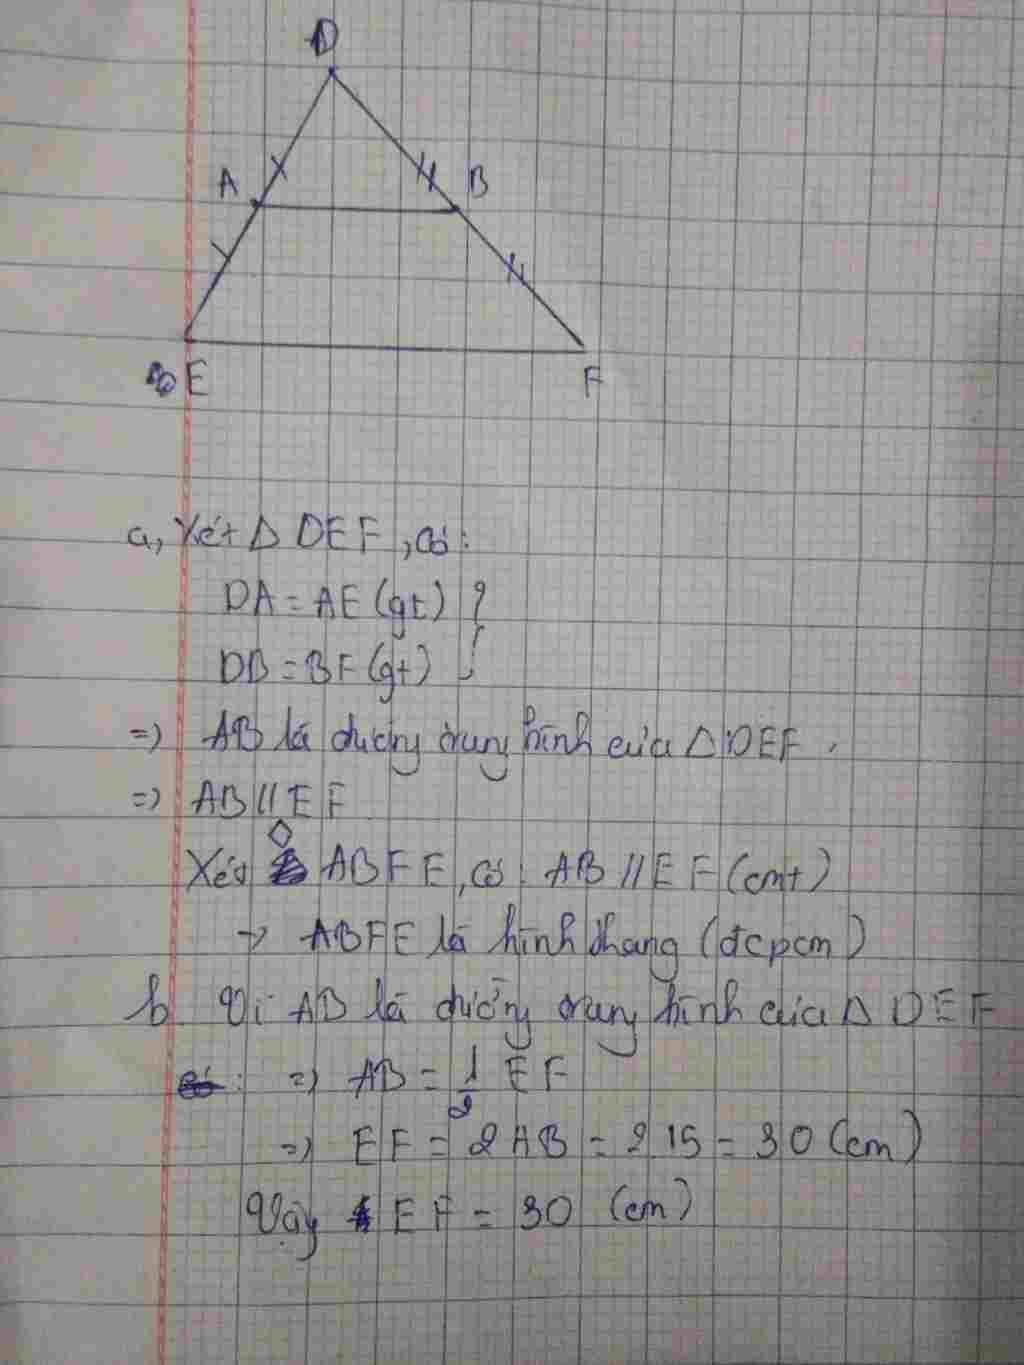 D
A B
E F
a, Xét Δ DEF, có:
DA = AE (gt)
DB = BF (gt)
=> AB là đường trung hình của Δ DEF.
=> AB // EF
Xét ◇ ABFE, có: AB // EF (cmt)
-> ABFE là hình thang (đcpcm)
b Vì AB là đường trung hình của Δ DEF
=> AB = 1/2 EF
=> EF = 2AB = 2 15 = 30 (cm)
Vậy EF = 30 (cm)